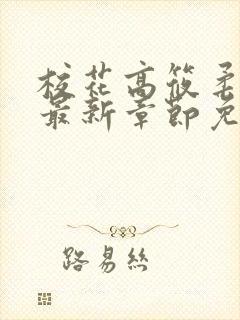 校花高筱柔
最新章節免
路易絲